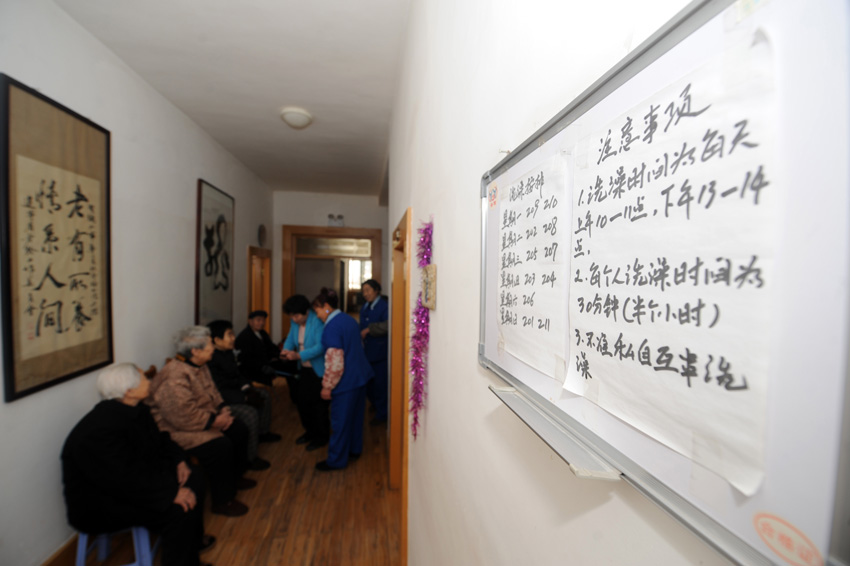 老有所养
情系人间
洗澡安排
星期一 209 210
星期二 202 208
星期三 205 207
星期四 203 204
星期六 206
星期日 201 211
注意事项
1.洗澡时间为每天
上午10—11点,下午13—14
点.
2.每个人洗澡时间为
30分钟(半个小时)
3.不准私自互串洗
澡
合格证